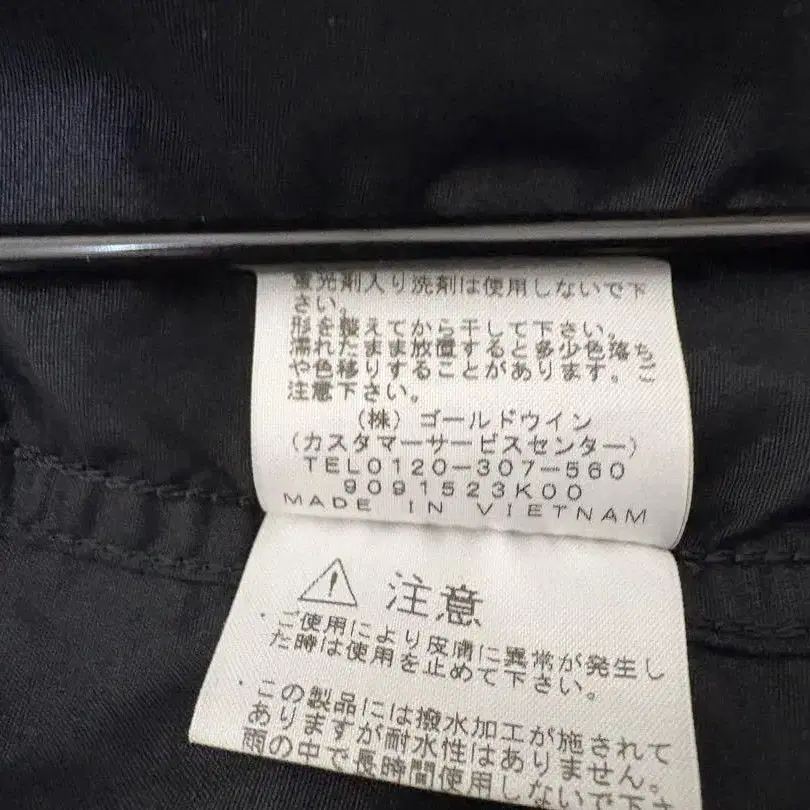 蛍光剤入り洗剤は使用しないで下
さい。
形を整えてから干して下さい。
濡れたまま放置すると多少色落ち
や色移りすることがあります。ご
注意下さい。
(株) ゴールドウイン
(カスタマーサービスセンター)
TEL0120-307-560
9091523K00
MADE IN VIETNAM
注意
・ご使用により皮膚に異常が発生し
た時は使用を止めて下さい。
・この製品には撥水加工が施されて
ありますが耐水性はありません。
雨の中で長時間使用しないで下